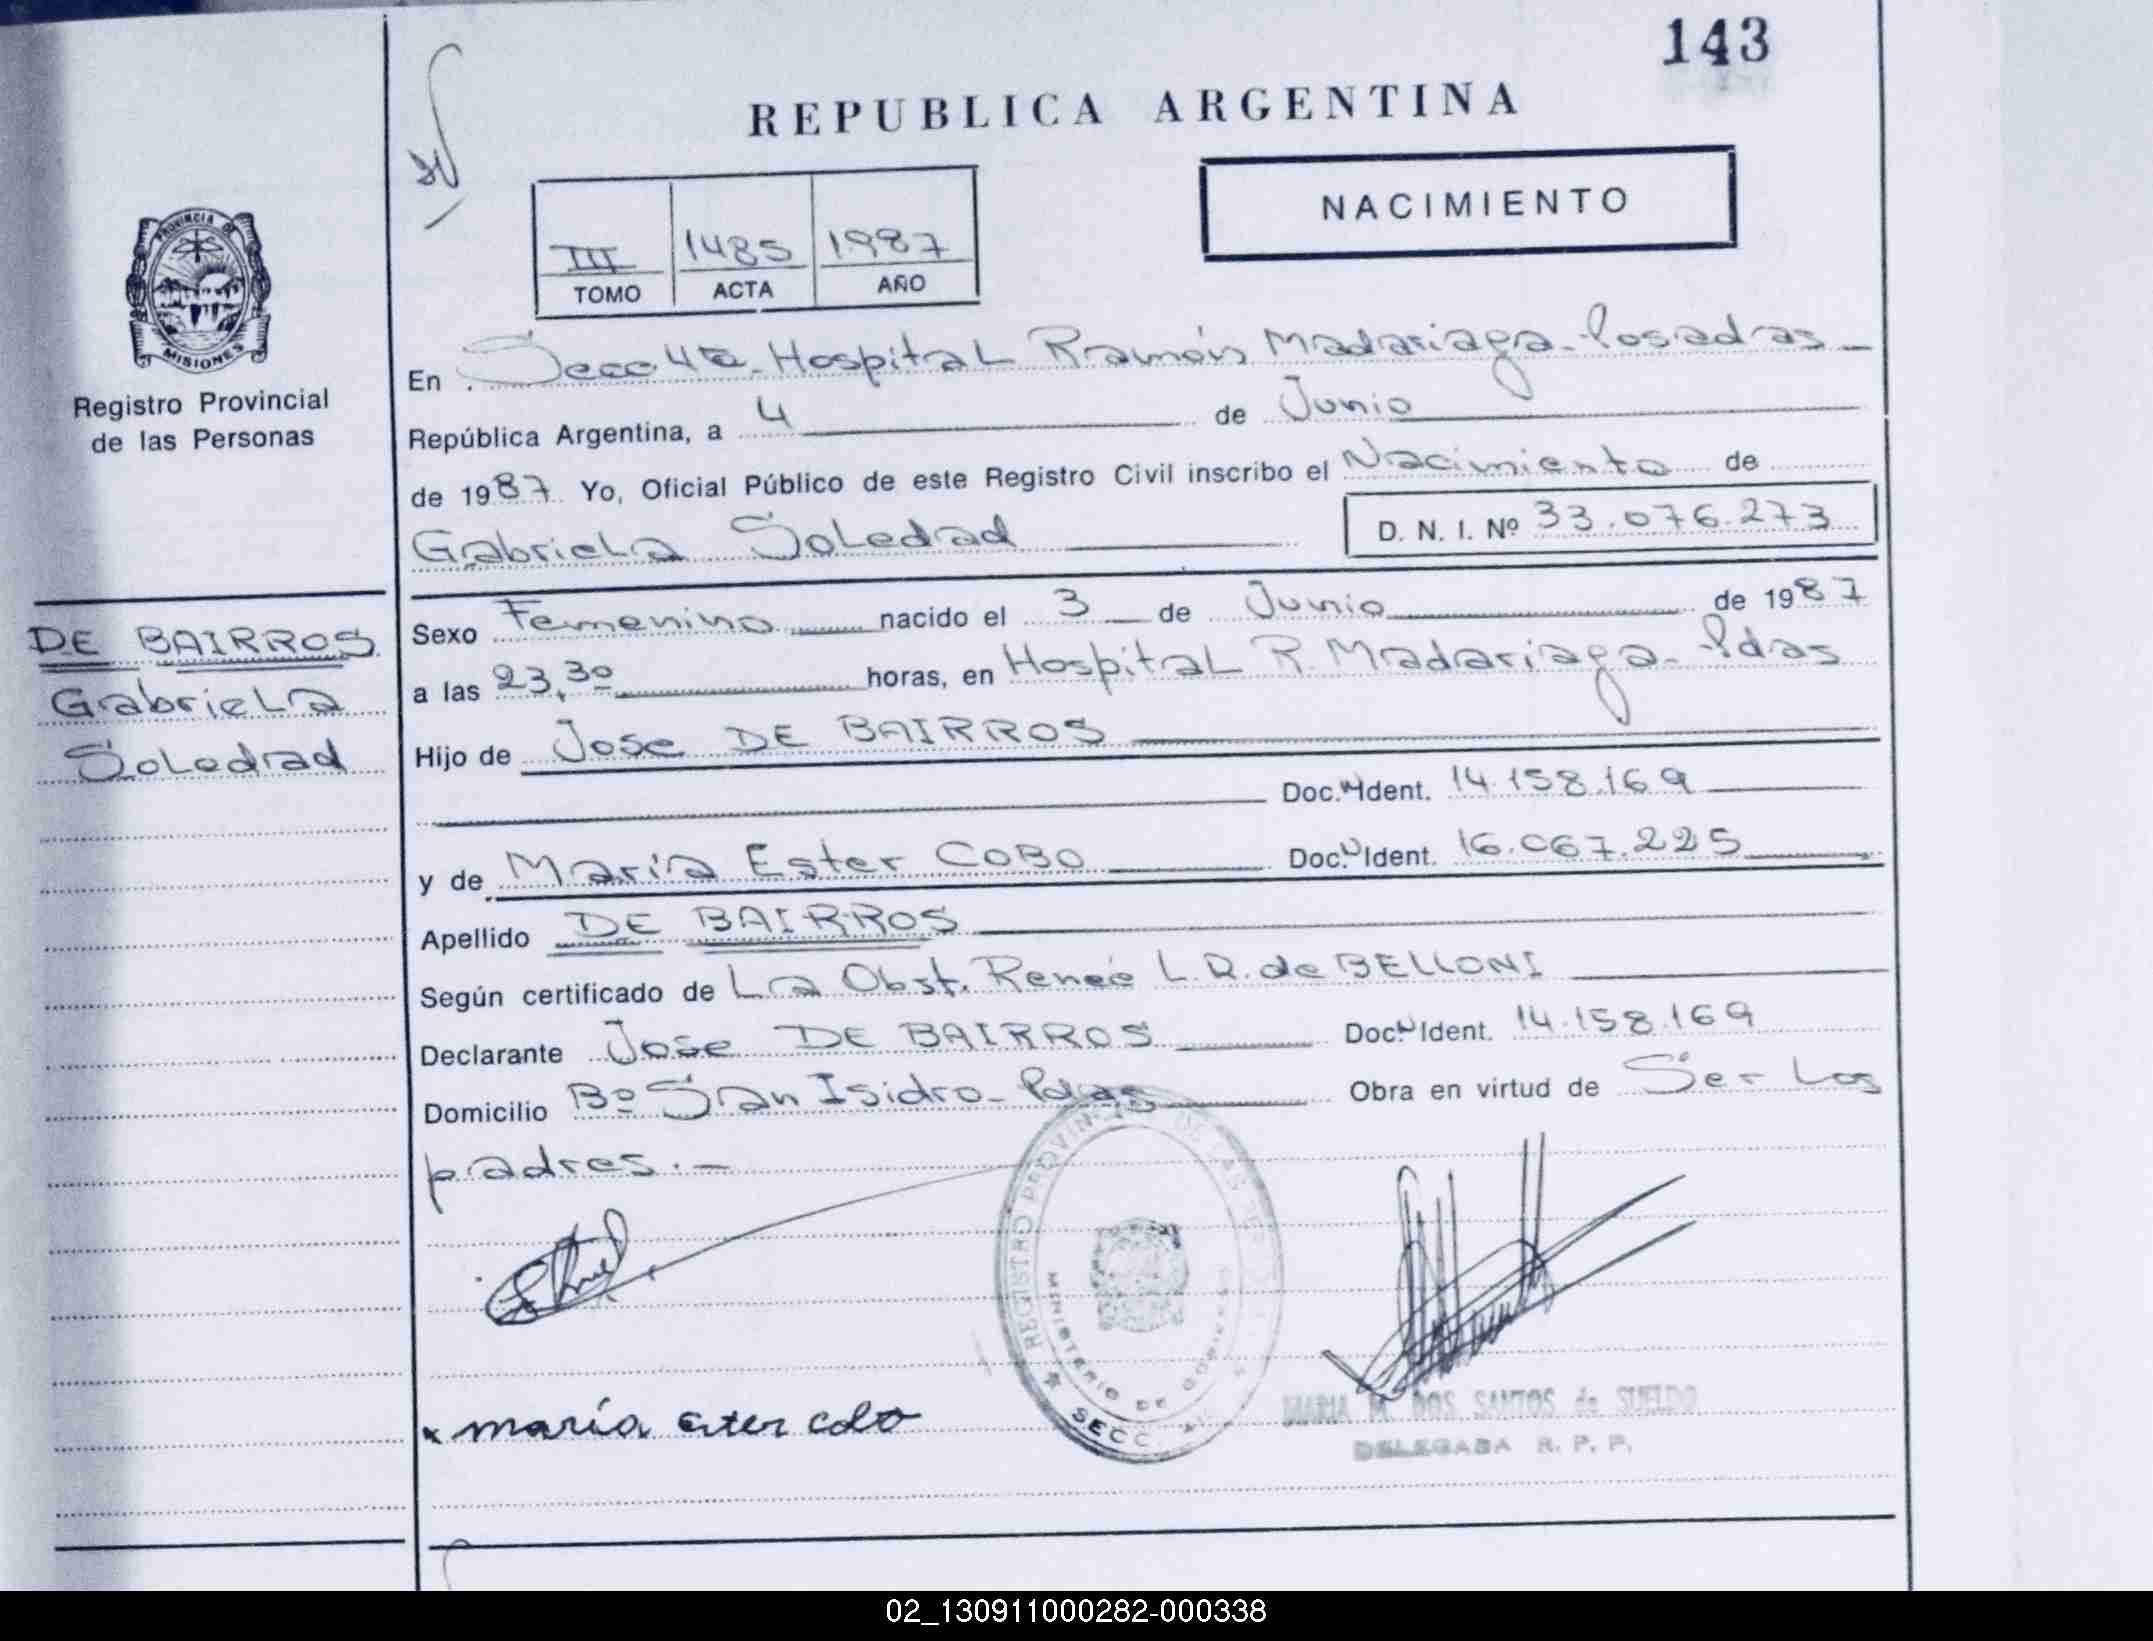 143
REPUBLICA ARGENTINA
NACIMIENTO
III 1485 1987
TOMO ACTA AÑO
PROVINCIA DE
MISIONES
Registro Provincial
de las Personas
DE BAIRROS
Gabriela
Soledad
En Secc 4ta - Hospital Ramón Madariaga - Posadas -
República Argentina, a 4 de Junio
de 1987 Yo, Oficial Público de este Registro Civil inscribo el Nacimiento de
Gabriela Soledad D. N. I. Nº 33.076.273
Sexo Femenino nacido el 3 de Junio de 1987
a las 23,30 horas, en Hospital R. Madariaga - Pdas
Hijo de Jose DE BAIRROS
Doc. Ident. 14.158.169
y de María Ester COBO Doc. Ident. 16.067.225
Apellido DE BAIRROS
Según certificado de La Obst. Reneé L.R. de BELLONI
Declarante Jose DE BAIRROS Doc. Ident. 14.158.169
Domicilio Bº San Isidro - Pdas Obra en virtud de Ser Los
padres. -
REGISTRO PROVINCIAL DE LAS
MINISTERIO DE
SECC
maría ester cobo
MARIA M. DOS SANTOS de SUELDO
DELEGADA R. P. P.
02_130911000282-000338